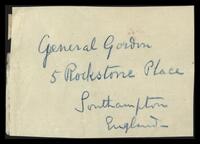 General Gordon
5 Rockstone Place
Southampton
England